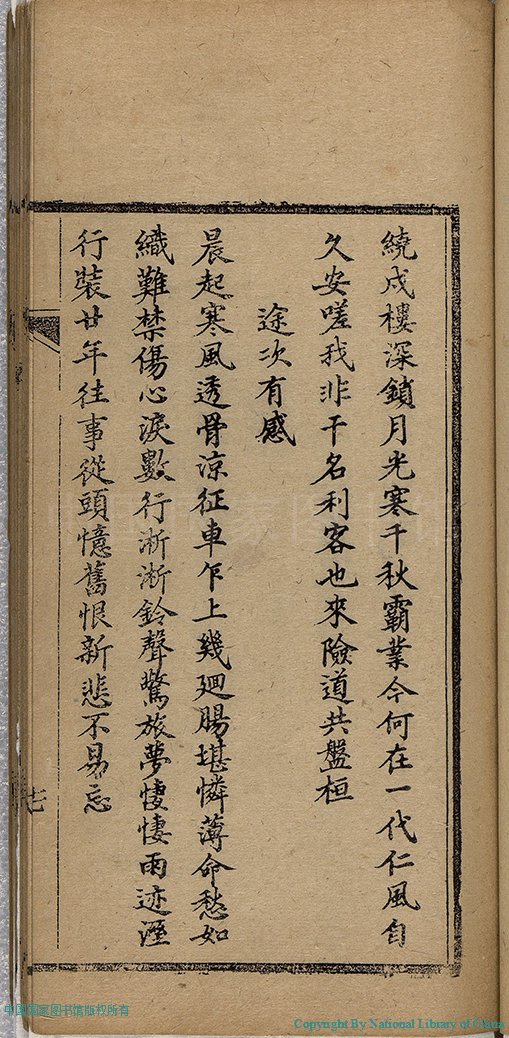 繞戍樓深鎖月光寒千秋霸業今何在一代仁風自
久安嗟我非干名利客也來險道共盤桓
途次有感
晨起寒風透骨涼征車乍上幾廻腸堪憐薄命愁如
織難禁傷心淚數行淅淅鈴聲驚旅夢悽悽雨迹溼
行裝廿年往事從頭憶舊恨新悲不易忘
中国国家图书馆版权所有
Copyright By National Library of China